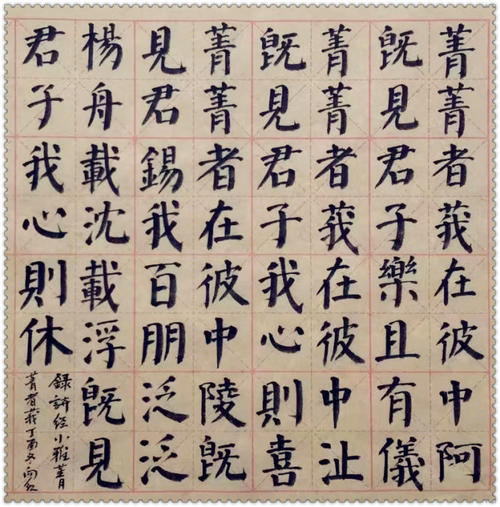 菁菁者莪在彼中阿
既見君子樂且有儀
菁菁者莪在彼中沚
既見君子我心則喜
菁菁者在彼中陵既
見君錫我百朋泛泛
楊舟載沈載浮既見
君子我心則休
録詩經小雅菁
菁者莪丁酉